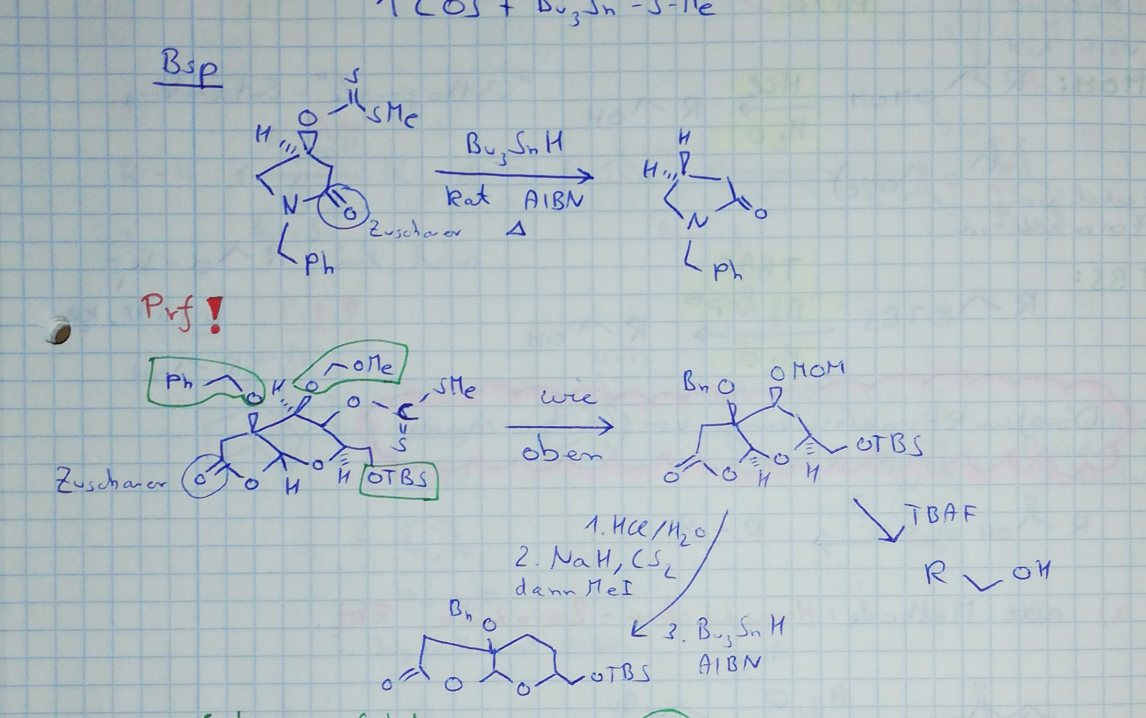 1 COS + Bu3Sn-S-Me
Bsp
S
O
SMe
H
N
O
Zuschauer
Ph
Bu3SnH
kat AIBN
Δ
H
H
N
O
Ph
Prf!
Ph
O
H
O
OMe
O
C
SMe
S
Zuschauer
O
O
H
O
H
OTBS
wie
oben
BnO
OMOM
O
O
H
O
H
OTBS
TBAF
R
OH
1. HCl/H2O
2. NaH, CS2
dann MeI
3. Bu3SnH
AIBN
Bn
O
O
O
O
OTBS